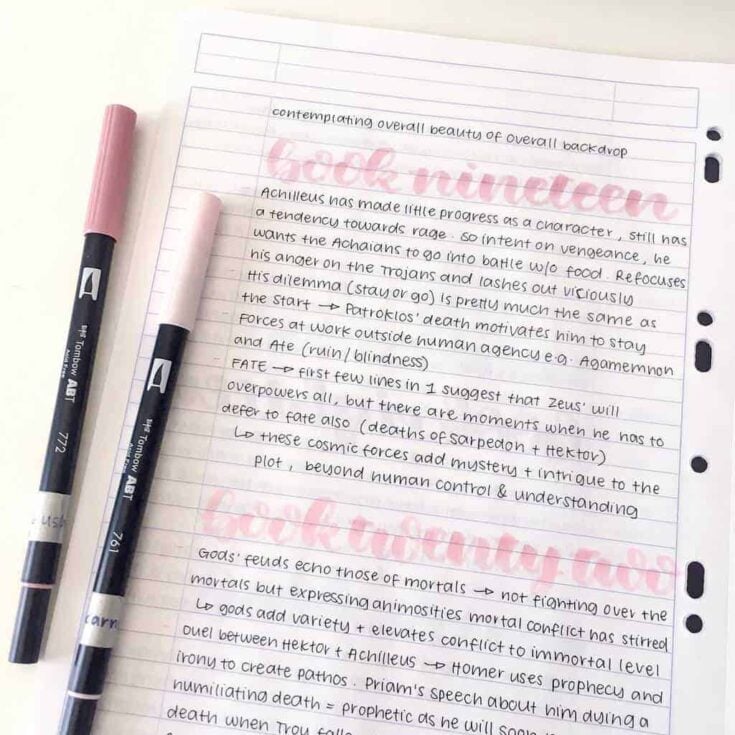 contemplating overall beauty of overall backdrop
book nineteen
Achilleus has made little progress as a character, still has
a tendency towards rage. So intent on vengeance, he
wants the Achaians to go into battle w/o food. Refocuses
his anger on the Trojans and lashes out viciously
His dilemma (stay or go) is pretty much the same as
the start → Patroklos' death motivates him to stay
Forces at work outside human agency e.g. Agamemnon
and Ate (ruin/blindness)
FATE → first few lines in 1 suggest that Zeus' will
overpowers all, but there are moments when he has to
defer to fate also (deaths of Sarpedon + Hektor)
↳ these cosmic forces add mystery + intrigue to the
plot, beyond human control & understanding
book twenty two
Gods' feuds echo those of mortals → not fighting over the
mortals but expressing animosities mortal conflict has stirred
↳ gods add variety + elevates conflict to immortal level
Duel between Hektor + Achilleus → Homer uses prophecy and
irony to create pathos. Priam's speech about him dying a
humiliating death = prophetic as he will soon
death when Troy
Tombow ABT
772
Tombow ABT
761